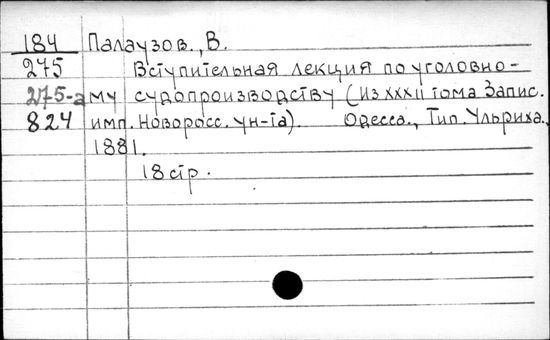 184 Палаузов., В.
275 Вступительная лекция по уголовно-
275-а му судопроизводству (из XXXII тома Запис.
824 имп. Новоросс. ун-та). Одесса., Тип. Ульриха.,
1881.
18 стр.